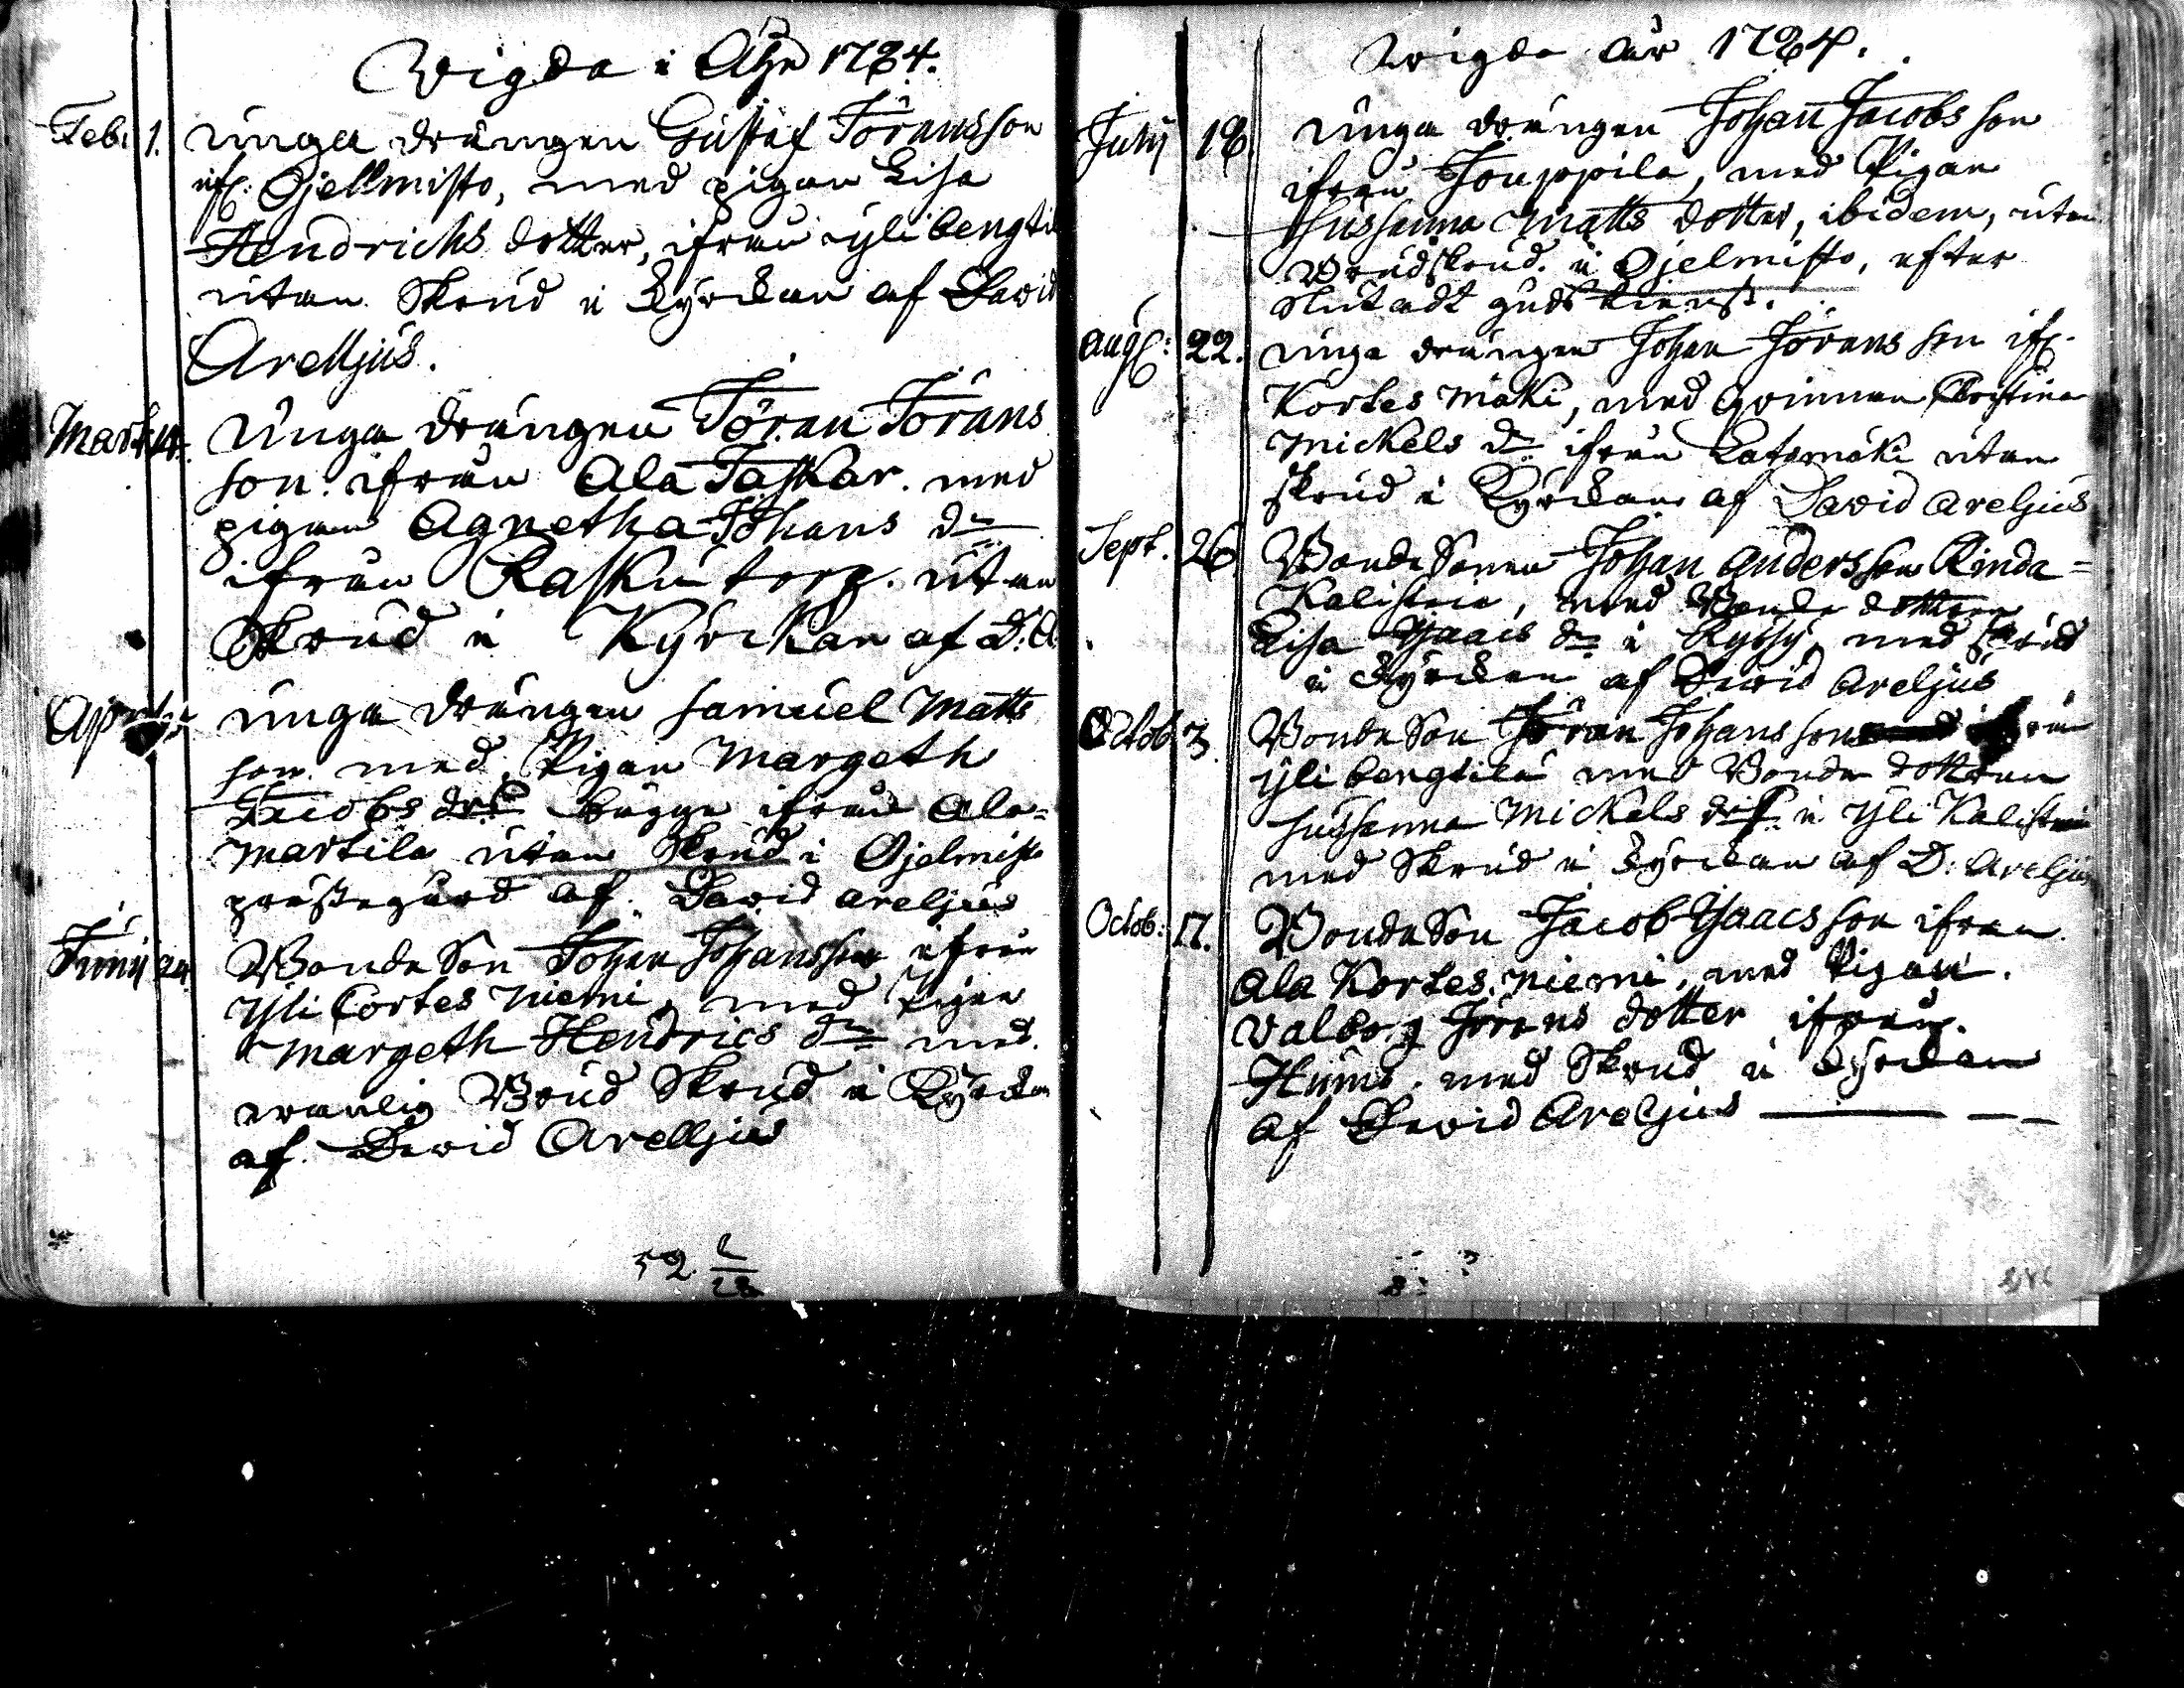 Wigda i Åhr 1784.
Feb: 1. unga drängen Gustaf Jöransson
ifr. Ojellmisto, med pigan Lisa
Hendrichs dotter, ifrån ylibengti
utan Skrud i Kyrckan af David
Arelljus.
Mart: 14. Unga drängen Jöran Jörans
son. ifrån Ala Jaskar. med
pigan Agnetha Johans dr
ifrån Rasku torp. utan
Skrud i Kyrckan af D. A
Apr unga drängen Samuel Matts
son. med Pigan Margeth
Jacobs dotr bägge ifrån Ala=
Martila utan Skrud i Ojelmisto
prästegård af. David Areljus
Junij 24 Bonde Son Johan Johansson ifrån
Yli Cortes Niemi, med Pigan
Margeth Hendrics dr med.
wanlig Brud Skrud i Kyrckan
af. David Arelljus
52
Wigda år 1784.
Julij 18 unga drängen Johan Jacobs son
ifrån Jouppila, med Pigan
Sussanna Matts dotter, ibidem, utan
Brudskrud. i Ojelmisto, efter
slutadt gudstienst.
aug: 22. unga drängen Johan Jörans son ifr.
Kortes Mäki, med qvinnan Christina
Mickels dr ifrån Latomäki utan
skrud i Kyrckan af David Areljus
Sept. 26 Bonde Sonen Johan Andersson Rinda=
Kalistaia, med Bonde dottren
Lisa Isaacs dr i Ryssy, med skrud
i Kyrckan af David Areljus
Octob 3 Bonde Son Jöran Johansson ifrån
Yli bengtila med Bonde dottren
Sussanna Mickels dr i Yli Kalistaia
med Skrud i Kyrckan af D: Areljus
Octob: 17. Bonde Son Jacob Isaacs son ifrån
Ala Kortes. Niemi, med Pigan.
Valborg Jörans dotter ifrån.
Humb. med Skrud i Kyrckan
af David Areljus